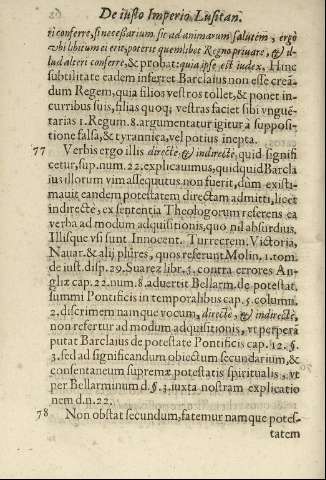 De iusto Imperio Lusitan.
ri conferre, si necessarium sit ad animarum salutem, ergo
vbi libitum ei erit poterit quemlibet Regno priuare, & il-
lud alteri conferre, & probat: quia ipse est iudex. Hinc
subtilitate eadem inferet Barclaius non esse creã
dum Regem, quia filios vestros tollet, & ponet in
curribus suis, filias quoq; vestras faciet sibi vnguē-
tarias 1. Regum. 8. argumentatur igitur a supposi-
tione falsa, & tyrannica, vel potius inepta.
77 Verbis ergo illis directe, & indirecte, quid signifi
cetur, sup. num. 22. explicauimus, quidquid Barcla
ius illorum vim assequutus non fuerit, dum existi-
mauit eandem potestatem directam admitti, licet
indirecte, ex sententia Theologorum referens ea
verba ad modum adquisitionis, quo nil absurdius.
Illisque vsi sunt Innocent. Turrecrem. Victoria,
Nauar. & alij plures, quos referunt Molin. 1. tom.
de iust. disp. 29. Suarez libr. 3. contra errores An-
gliæ cap. 22. num. 8. aduertit Bellarm. de potestat.
summi Pontificis in temporalibus cap. 5. column.
2. discrimen namque vocum, directe, & indirecte,
non refertur ad modum adquisitionis, vt perperã
putat Barclaius de potestate Pontificis cap. 12. §.
3. sed ad significandum obiectum secundarium, &
consentaneum supremæ potestatis spiritualis, vt
per Bellarminum d. §. 3. iuxta nostram explicatio
nem d. n. 22.
78 Non obstat secundum, fatemur namque potes-
tatem